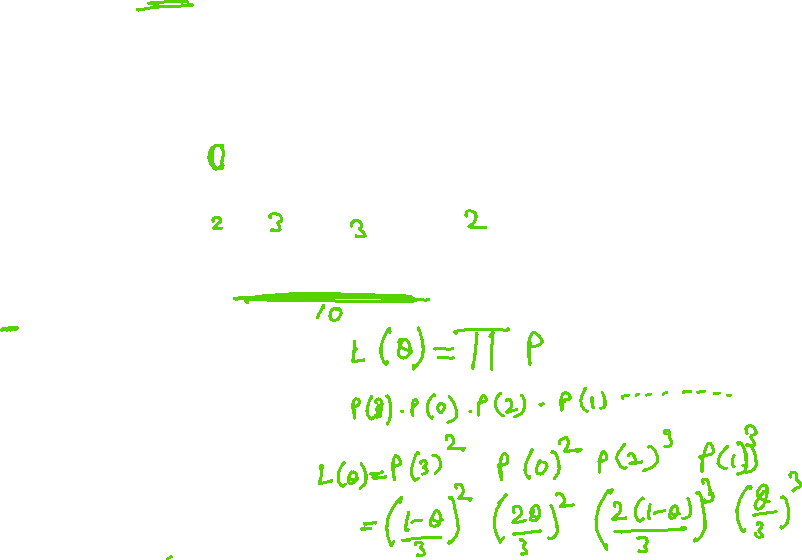 0
2 3 3 2
10
L(θ) = ∏ P
P(3) · P(0) · P(2) · P(1) ··········
L(θ) = P(3)² P(0)² P(2)³ P(1)³
= ((1-θ)/3)² (2θ/3)² (2(1-θ)/3)³ (θ/3)³